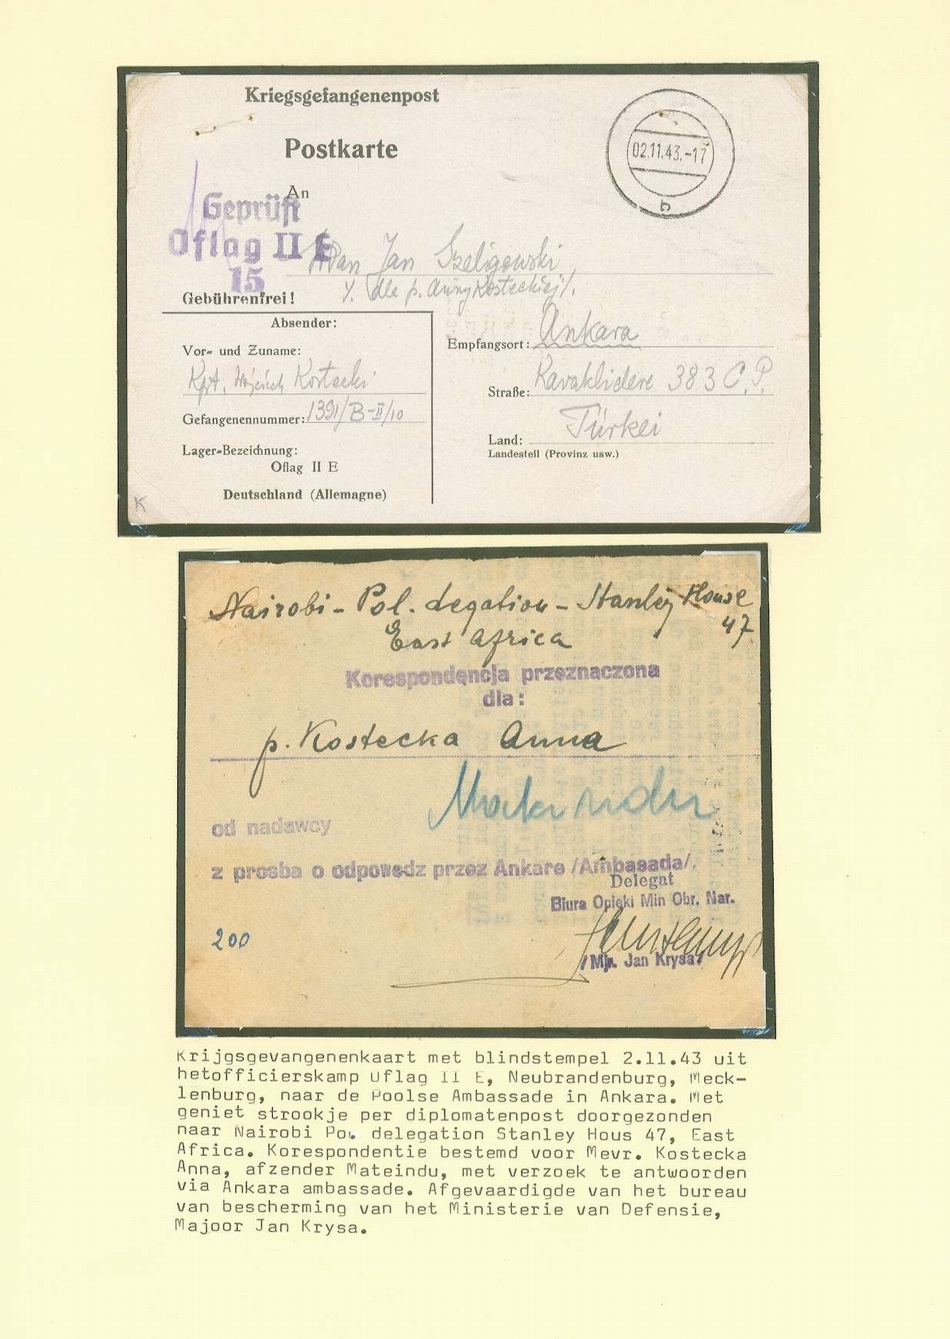 Kriegsgefangenenpost
Postkarte
02.11.43.-17
b
An
Geprüft
Oflag II E
15
Pan Jan Szeligowski
/. dla p. Anny Kosteckiej/.
Gebührenfrei!
Absender:
Vor- und Zuname:
Kpt. Wojciech Kostecki
Gefangenennummer: 1391/B-II/10
Lager-Bezeichnung:
Oflag II E
Deutschland (Allemagne)
Empfangsort: Ankara
Straße: Kavaklidere 383 C.P.
Land: Türkei
Landesteil (Provinz usw.)
K
Nairobi - Pol. degation - Stanley House
47.
East Africa
Korespondencja przeznaczona
dla:
p. Kostecka Anna
od nadawcy
z prosba o odpowedz przez Ankare /Ambasada/.
Delegat
Biura Opieki Min Obr. Nar.
200
/Mjr. Jan Krysa/
Krijgsgevangenenkaart met blindstempel 2.11.43 uit
hetofficierskamp Oflag II E, Neubrandenburg, Meck-
lenburg, naar de Poolse Ambassade in Ankara. Met
geniet strookje per diplomatenpost doorgezonden
naar Nairobi Pol. delegation Stanley Hous 47, East
Africa. Korespondentie bestemd voor Mevr. Kostecka
Anna, afzender Mateindu, met verzoek te antwoorden
via Ankara ambassade. Afgevaardigde van het bureau
van bescherming van het Ministerie van Defensie,
Majoor Jan Krysa.